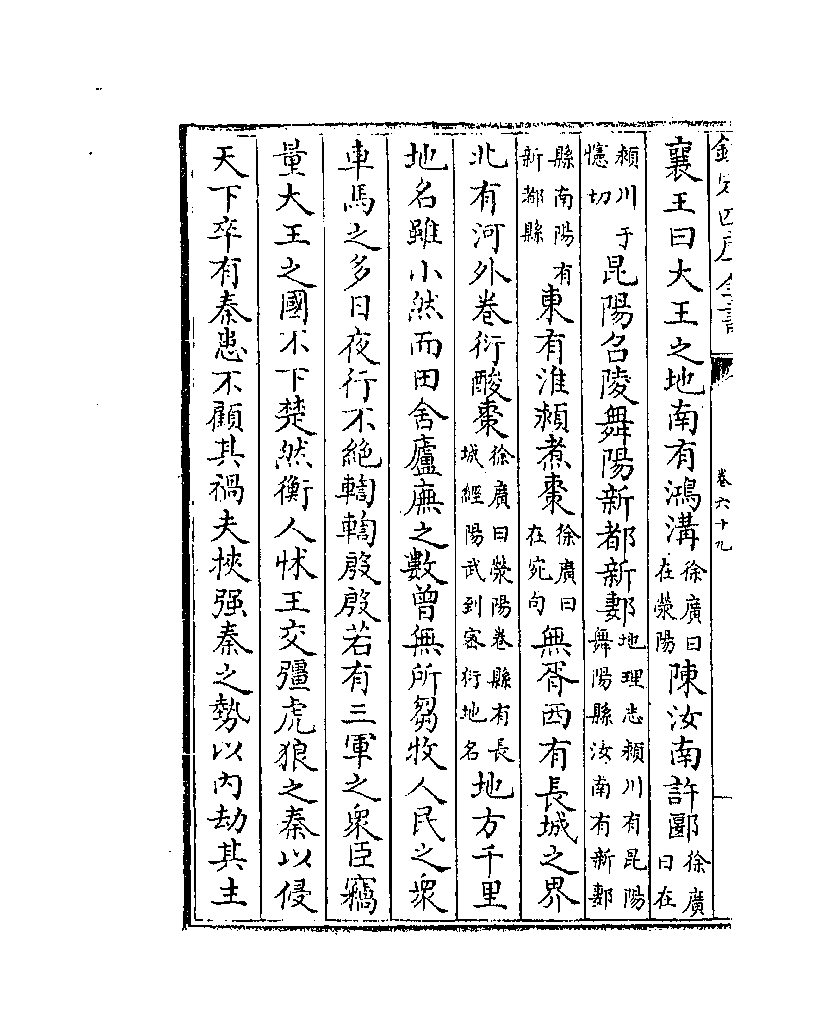 欽定四庫全書
卷六十九
襄王曰大王之地南有鴻溝徐廣曰在滎陽陳汝南許郾徐廣曰在
潁川于憶切昆陽召陵舞陽新都新郪地理志潁川有昆陽舞陽縣汝南有新郪
縣南陽有新都縣東有淮潁煮棗徐廣曰在宛句無胥西有長城之界
北有河外卷衍酸棗徐廣曰滎陽卷縣有長城經陽武到密衍地名地方千里
地名雖小然而田舍廬廡之數曾無所芻牧人民之衆
車馬之多日夜行不絶輷輷殷殷若有三軍之衆臣竊
量大王之國不下楚然衡人怵王交彊虎狼之秦以侵
天下卒有秦患不顧其禍夫挾强秦之勢以内劫其主